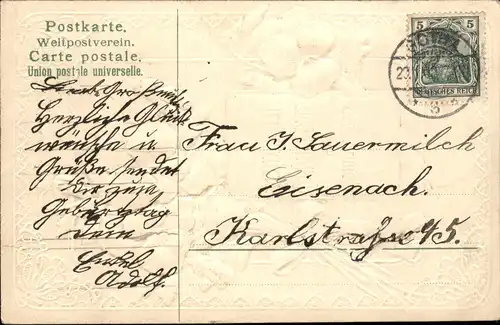 Postkarte.
Weltpostverein.
Carte postale.
Union postale universelle.
Liebe Großmutter
Herzliche Glück
wünsche u
Grüße sendet
Dir zum
Geburtstag
Dein
Enkel
Adolf.
5 5
DEUTSCHES REICH
Frau J. Sauermilch
Eisenach.
Karlstraße 45.